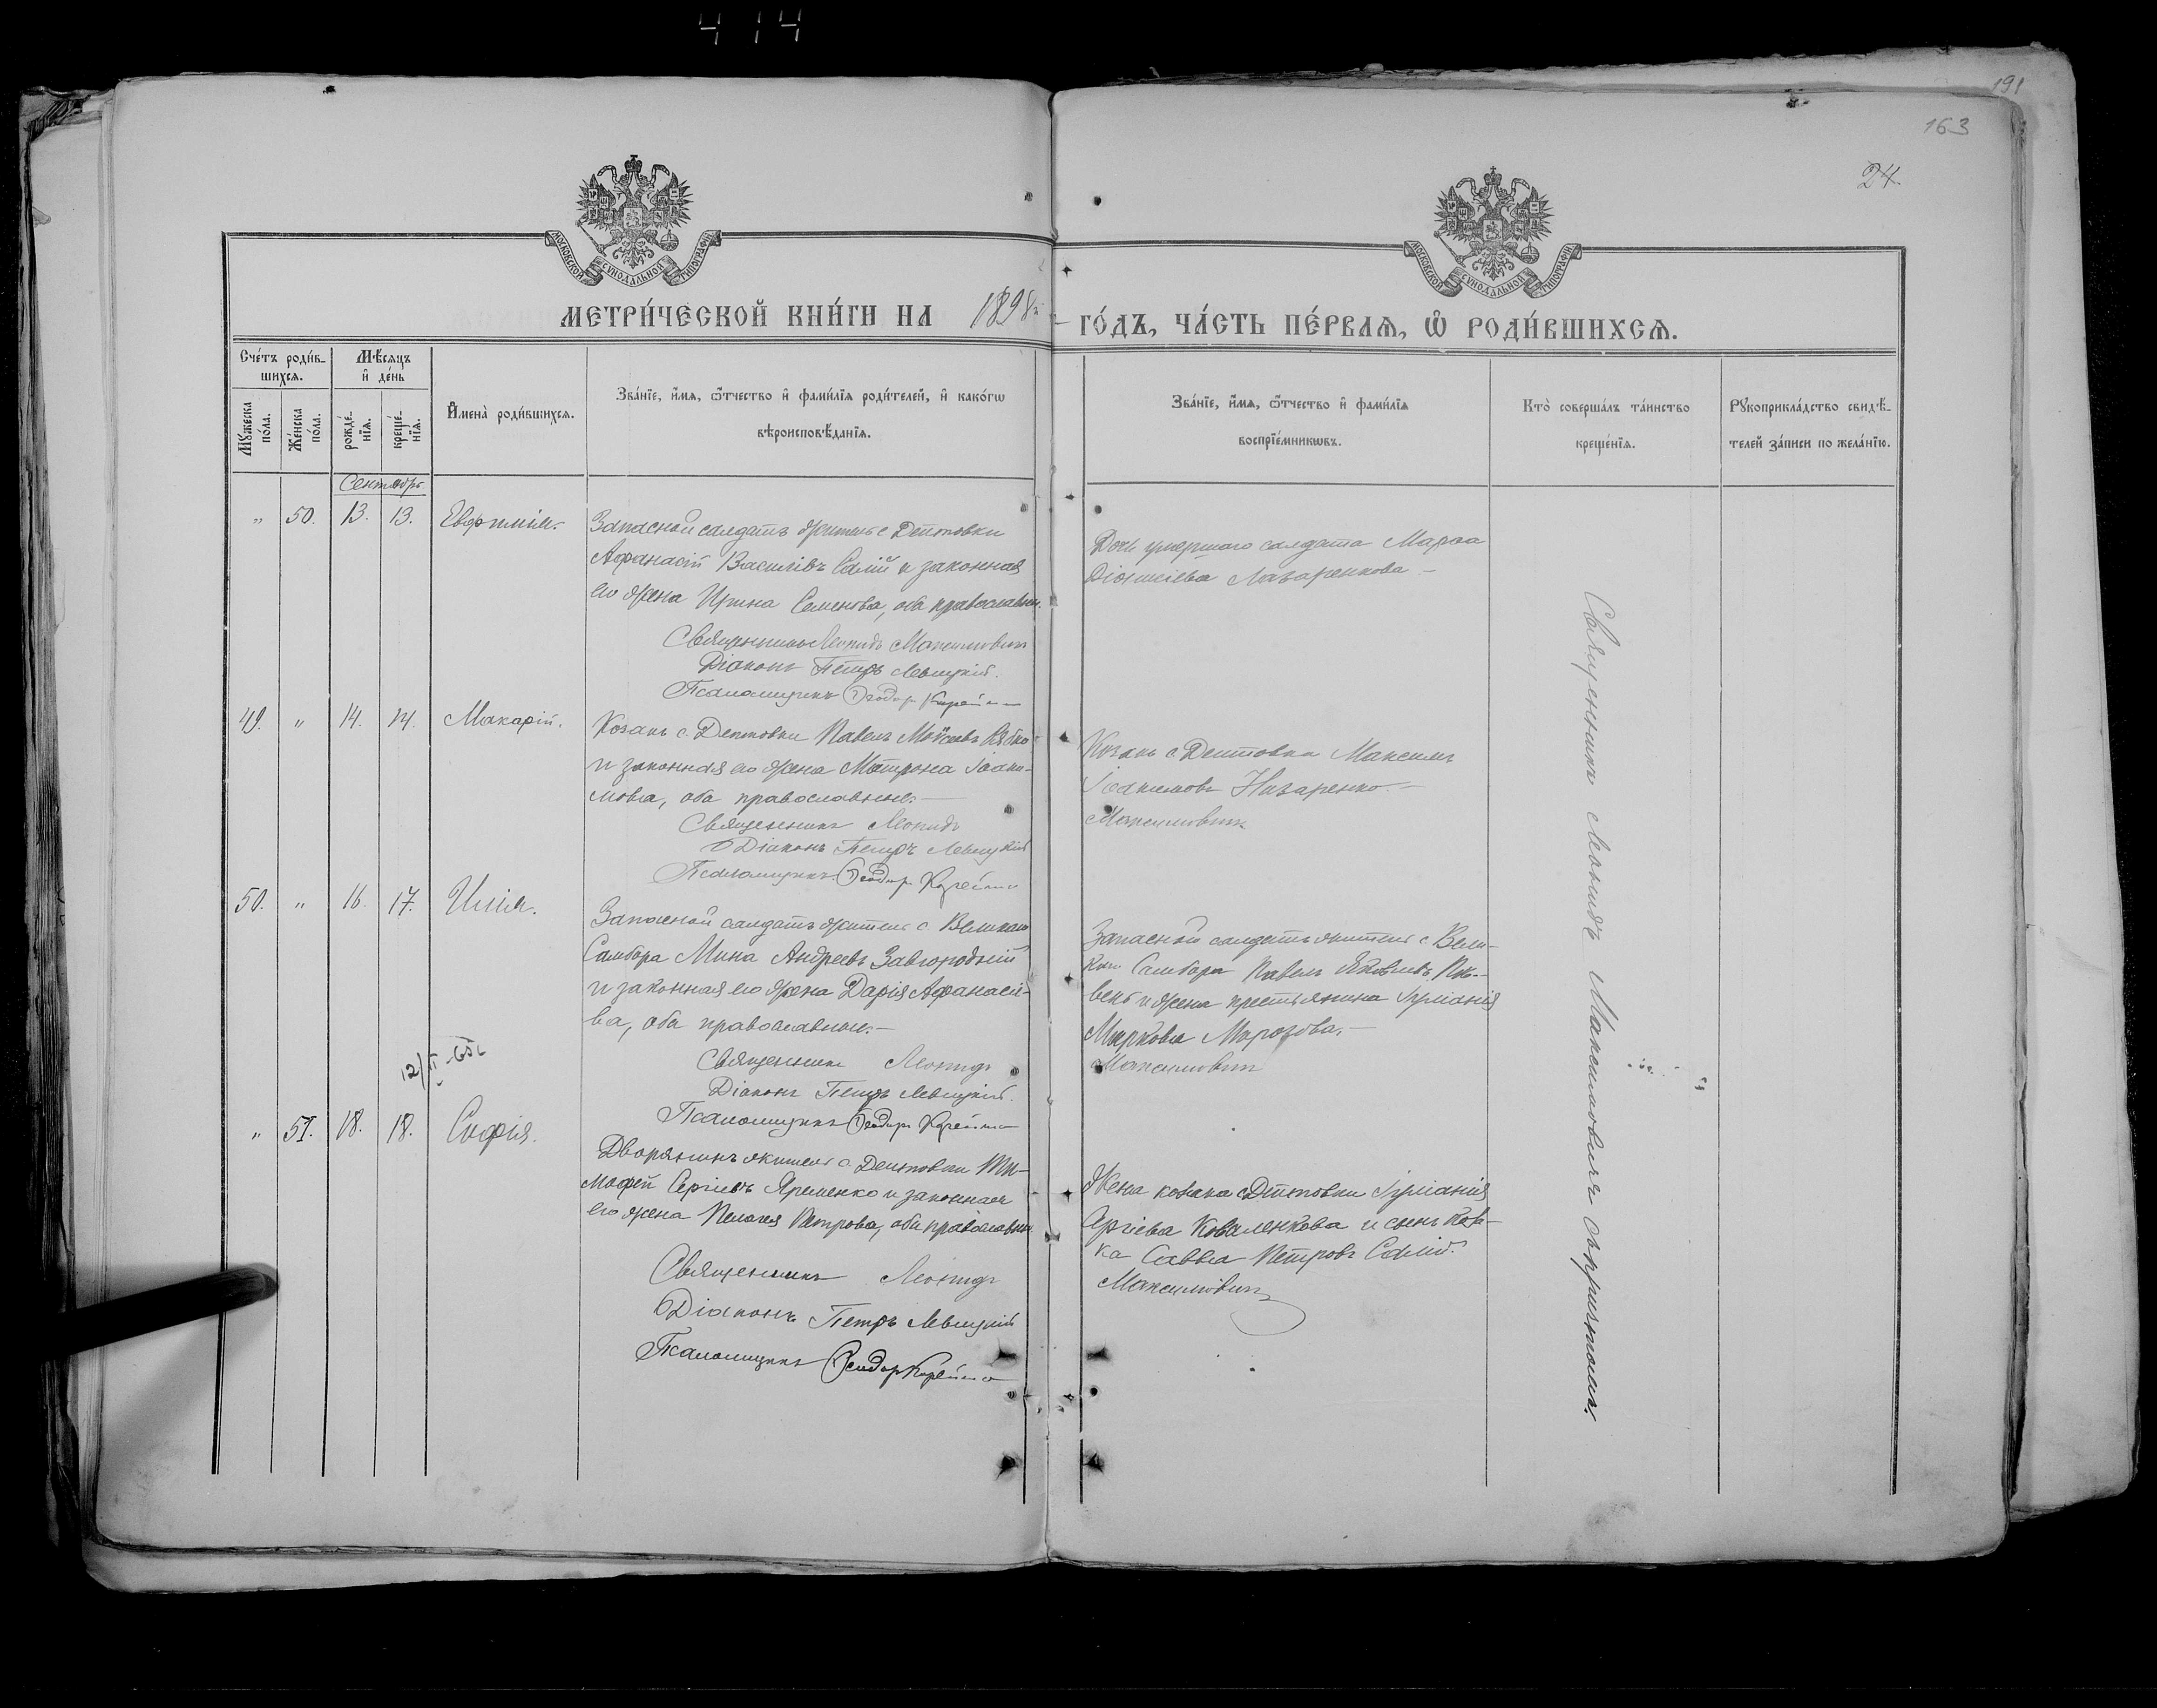 414
191
163
24.
МОСКОВСКОЙ СѴНОДАЛЬНОЙ ТИПОГРАФІИ
МОСКОВСКОЙ СѴНОДАЛЬНОЙ ТИПОГРАФІИ
МЕТРИ́ЧЕСКОЙ КНИ́ГИ НА 1898й
ГО́ДЪ, ЧА́СТЬ ПЕ́РВАѦ, Ѽ РОДИ́ВШИХСѦ.
Сче́тъ роди́в-
шихсѧ.
Мѣ́сѧцъ
и҆ де́нь
Мꙋ́жеска по́ла.
Же́нска по́ла.
рожде́-нїѧ.
креще́-нїѧ.
И҆мена̀ роди́вшихсѧ.
Зва́нїе, и҆́мѧ, ѻ҆́тчество и҆ фами́лїѧ роди́телей, и҆ како́гѡ
вѣроисповѣ́данїѧ.
Зва́нїе, и҆́мѧ, ѻ҆́тчество и҆ фами́лїѧ
воспрїе́мникѡвъ.
Кто̀ соверша́лъ та́инство
креще́нїѧ.
Рꙋкоприкла́дство свидѣ́-
телей за́писи по жела́нїю.
Сентябрь
" 50. 13. 13. Евфимія.
Запасной солдатъ житель с Дептовки
Афанасій Василіевъ Салій и законная
его жена Ирина Семенова, оба православны.
Священникъ Леонидъ Максимовичъ
Діаконъ Петръ Левицкій.
Псаломщикъ Ѳеодоръ
Дочь умершаго солдата Марѳа
Діонисіева Лазаренкова –
49. " 14. 14. Макарій.
Козакъ с. Дептовки Павелъ Моѵсеевъ Рябко
и законная его жена Матрона Іоаки-
мова, оба православные. –
Священникъ Леонидъ
Діаконъ Петръ Левицкій
Псаломщикъ Ѳеодоръ
Козакъ с Дептовки Максимъ
Іоакимовъ Назаренко. –
Максимовичъ
50. " 16. 17. Илія.
Запасной солдатъ житель с Великаго
Самбора Мина Андреевъ Завгородній
и законная его жена Дарія Афанасіе-
ва, оба православные. –
Священникъ Леонидъ
Діаконъ Петръ Левицкій.
Псаломщикъ Ѳеодоръ
Запасной солдатъ житель с Вели-
каго Самбора Павелъ Яковлевъ Пи-
вень и жена крестьянина Іуліанія
Маркова Морозова. –
Максимовичъ
12/II-65
" 51. 18. 18. Софія.
Дворянинъ житель с Дептовки Ти-
мофей Сергіевъ Яременко и законная
его жена Пелагея Петрова, оба православны
Священникъ Леонидъ
Діаконъ Петръ Левицкій
Псаломщикъ Ѳеодоръ
Жена козака с Дептовки Іуліанія
Сергіева Коваленкова и сынъ коза-
ка Савва Петровъ Салій.
Максимовичъ
Священникъ Леонидъ Максимовичъ